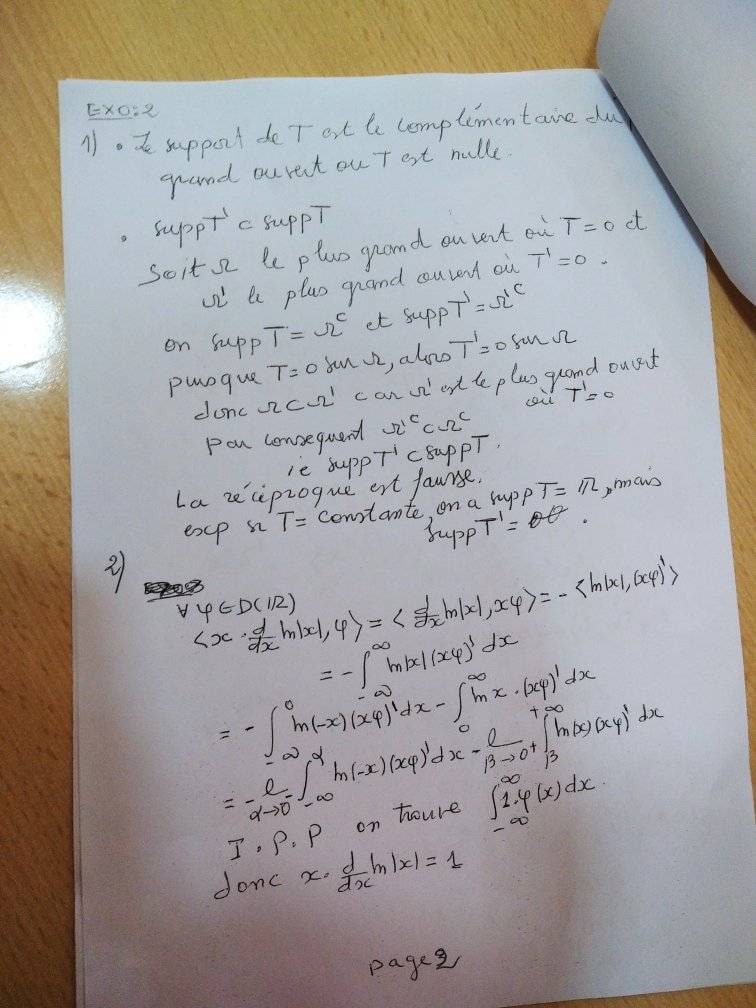 EXO:2
1) • Le support de T est le complémentaire du
grand ouvert ou T est nulle.
• suppT' ⊂ suppT
Soit Ω le plus grand ouvert où T=0 et
Ω' le plus grand ouvert où T'=0.
on suppT=Ω^c et suppT'=Ω'^c
puisque T=0 sur Ω, alors T'=0 sur Ω
donc Ω⊂Ω' car Ω' est le plus grand ouvert
où T'=0
par consequent Ω'^c⊂Ω^c
ie suppT'⊂suppT.
La réciproque est fausse.
exp si T= constante, on a suppT=ℝ, mais
suppT'=∅.
2)
∀φ∈D(ℝ)
⟨x·d/dx ln|x|, φ⟩ = ⟨d/dx ln|x|, xφ⟩ = -⟨ln|x|, (xφ)'⟩
= -∫_{-∞}^{∞} ln|x| (xφ)' dx
= -∫_{-∞}^{0} ln(-x)(xφ)' dx - ∫_{0}^{∞} ln x·(xφ)' dx
= -l_{α→0^-} ∫_{-∞}^{α} ln(-x)(xφ)' dx - l_{β→0^+} ∫_{β}^{+∞} ln(x)(xφ)' dx
I.P.P on trouve ∫_{-∞}^{∞} 1.φ(x)dx.
donc x·d/dx ln|x|=1
page 2